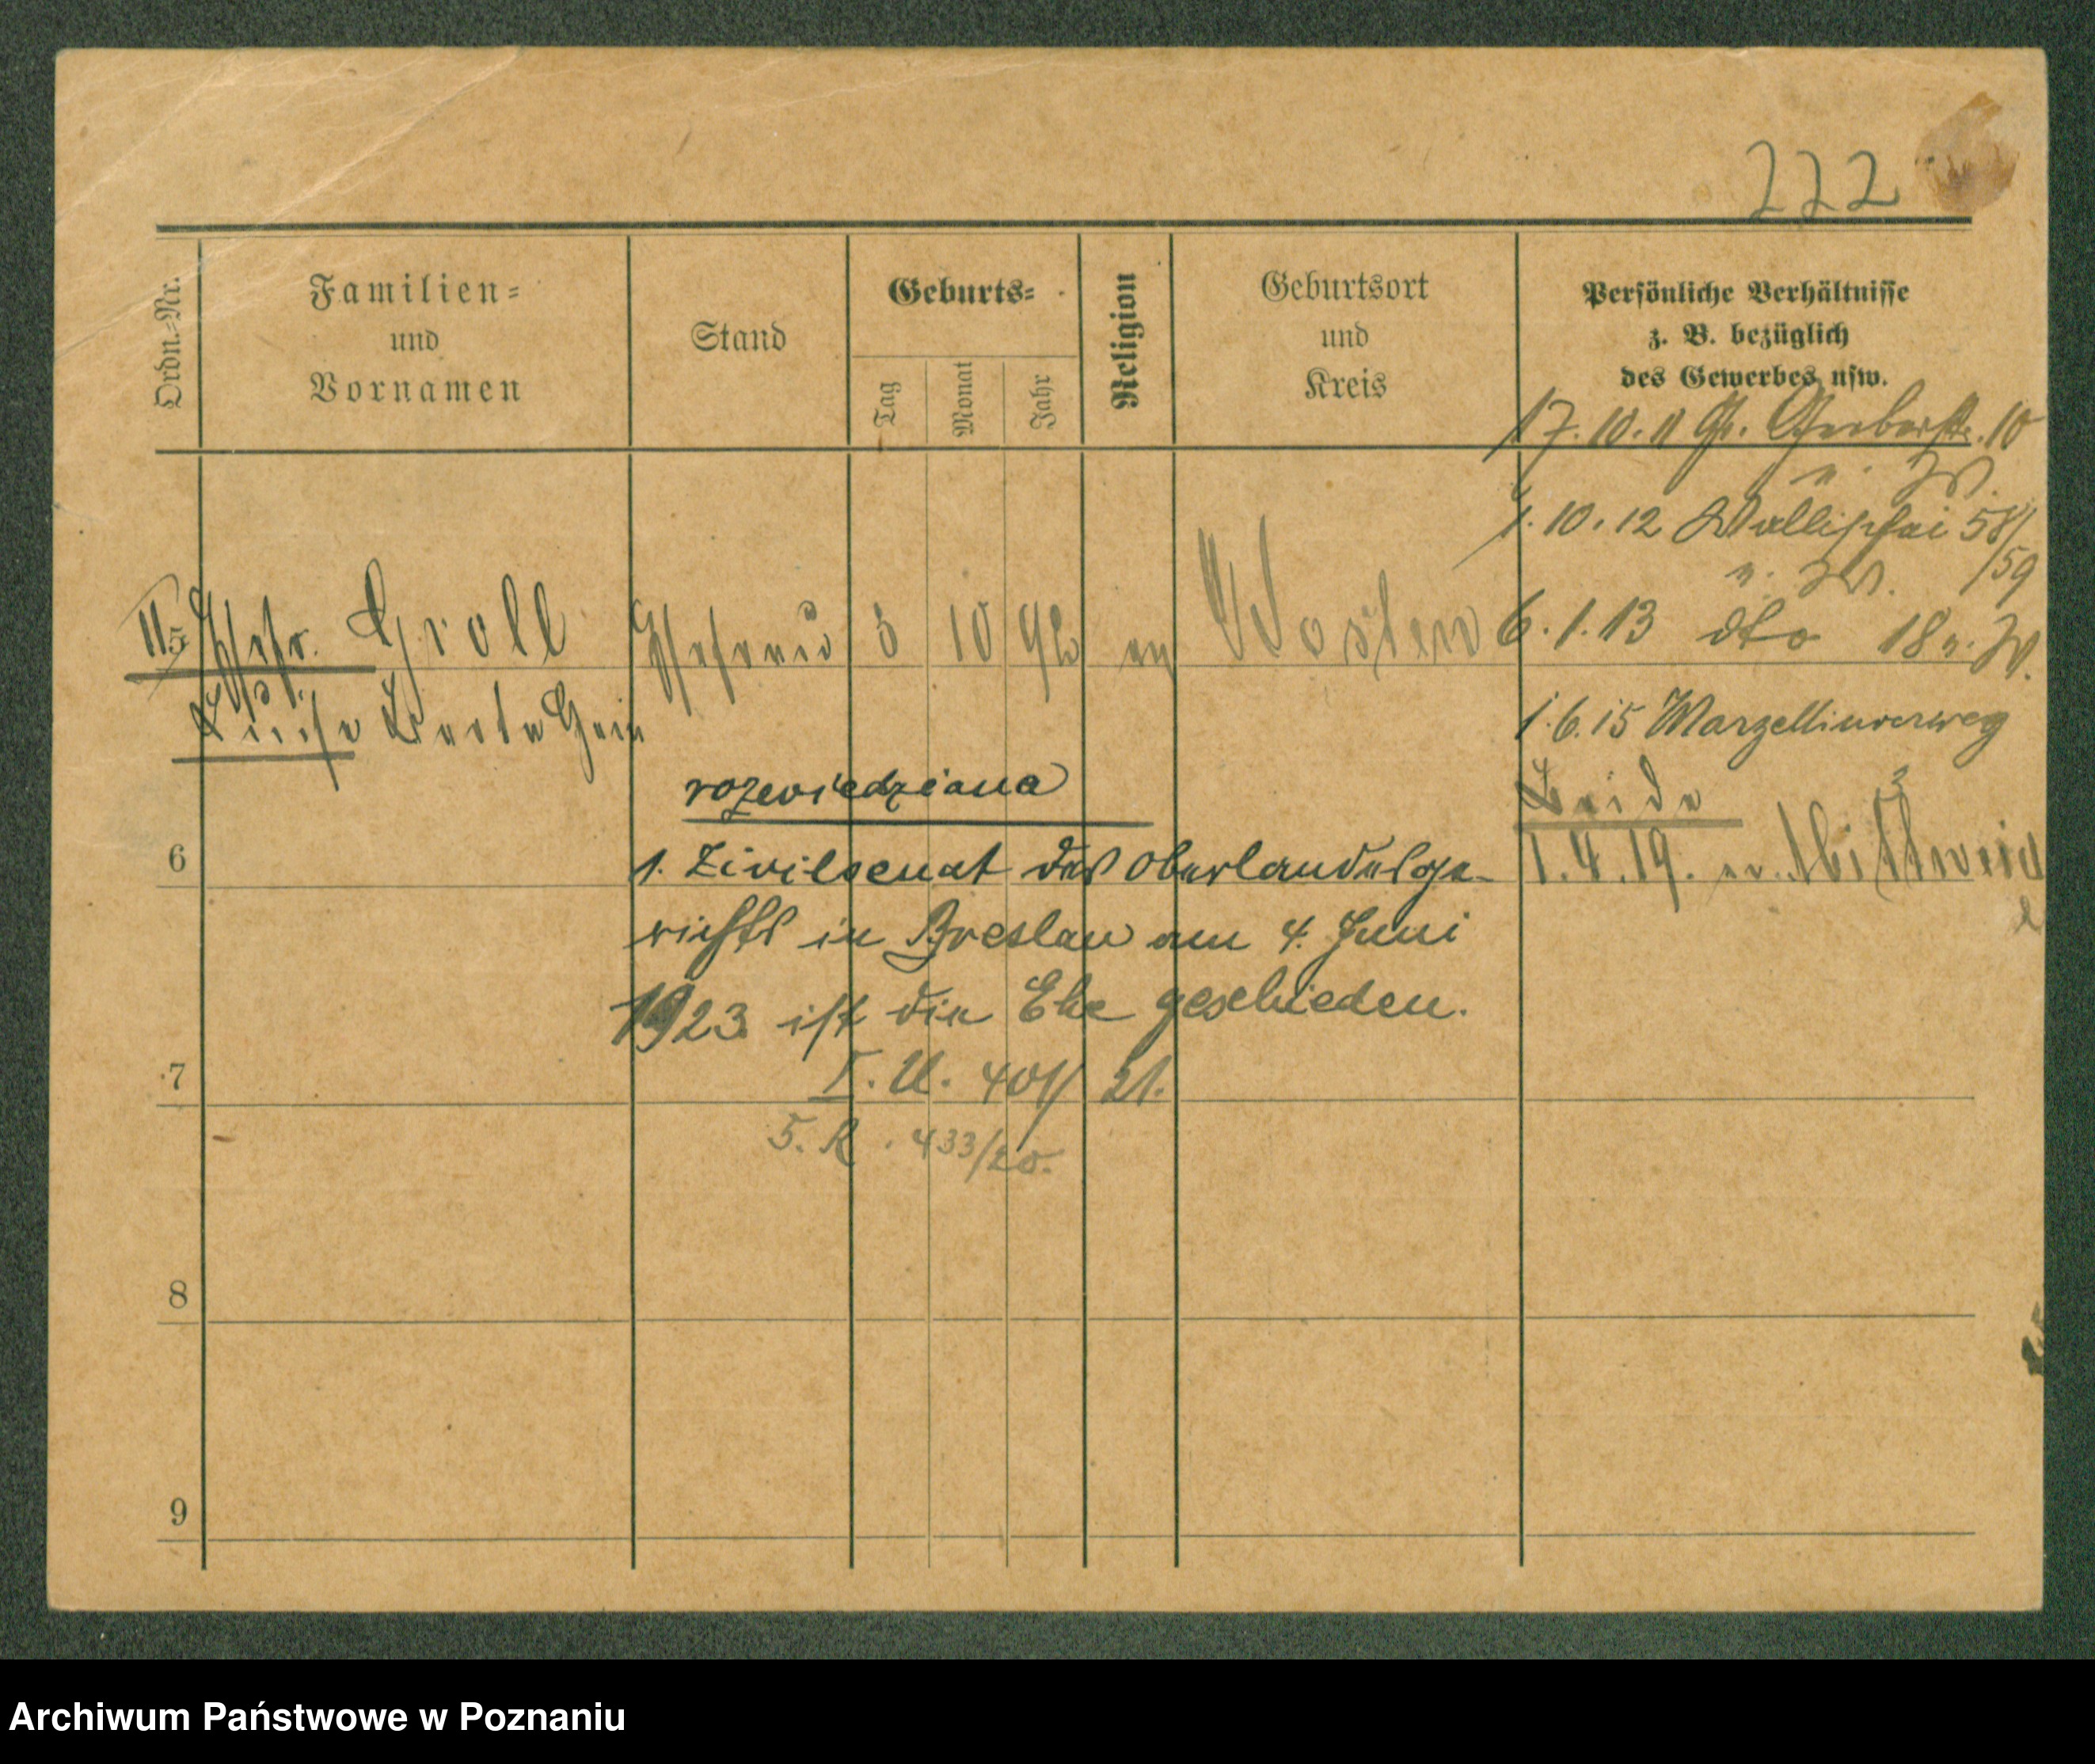 222
Ordn.-Nr.
Familien-
und
Vornamen
Stand
Geburts-
Tag
Monat
Jahr
Religion
Geburtsort
und
Kreis
Persönliche Verhältnisse
z. B. bezüglich
des Gewerbes usw.
17. 10. 11 Gr. Gerberstr. 10
v. W.
1. 10. 12 Wallischei 58/
/59
v. W.
Groll
Ehefrau 3 10 92 ev Posten
6. 1. 13 dto 18 v. W.
Luise Berta
1. 6. 15 Marzellinerweg
rozwiedziana
Beide
6
1. Zivilsenat des Oberlandesge-
1. 4. 19. n. Mittweid
richts in Breslau am 4. Juni
1923 ist die Ehe geschieden.
7
I. U. 401/21.
5. R. 433/20.
8
9
Archiwum Państwowe w Poznaniu